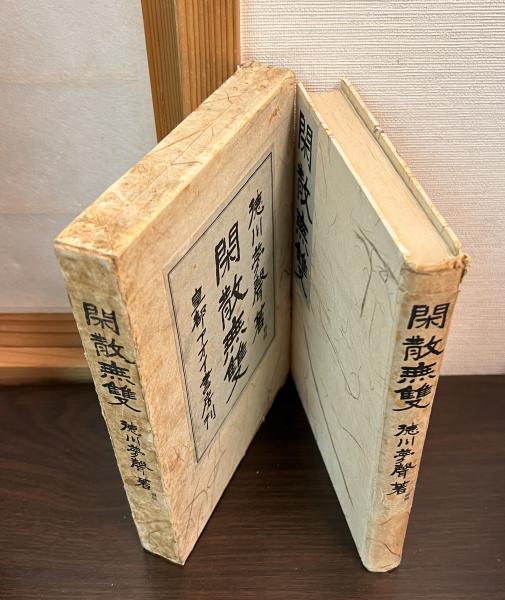 閑散無雙
徳川夢聲著
徳川夢聲著
閑散無雙
皇都アオイ書房刊
閑散無雙
閑散無雙
徳川夢聲著